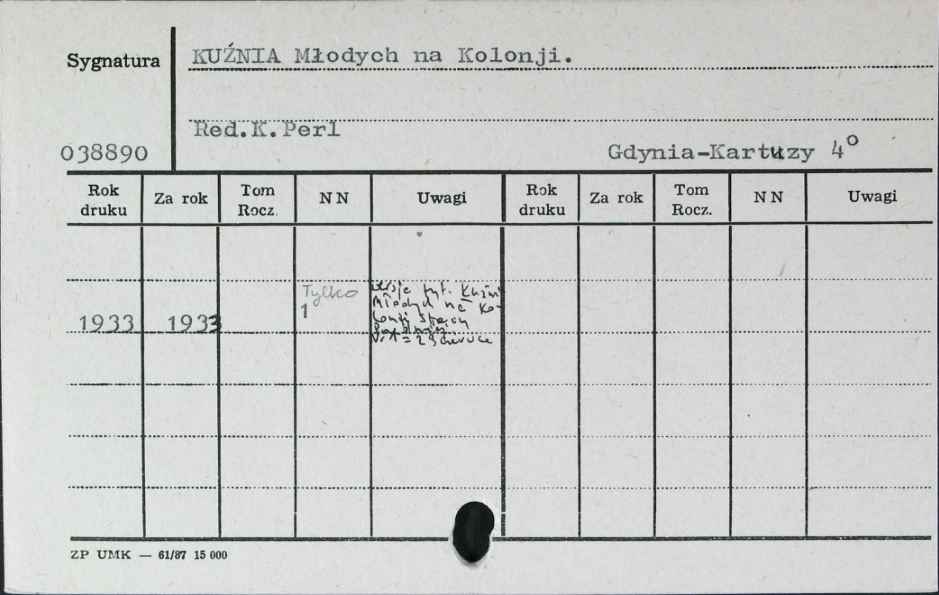 Sygnatura
KUŹNIA Młodych na Kolonji.
Red.K.Perl
038890
Gdynia-Kartuzy 4º
Rok druku Za rok Tom Rocz. NN Uwagi Rok druku Za rok Tom Rocz. NN Uwagi
Tylko
1933 1933 1
tyt. Kuźni
Młodych na Ko-
lonji
ZP UMK — 61/87 15 000